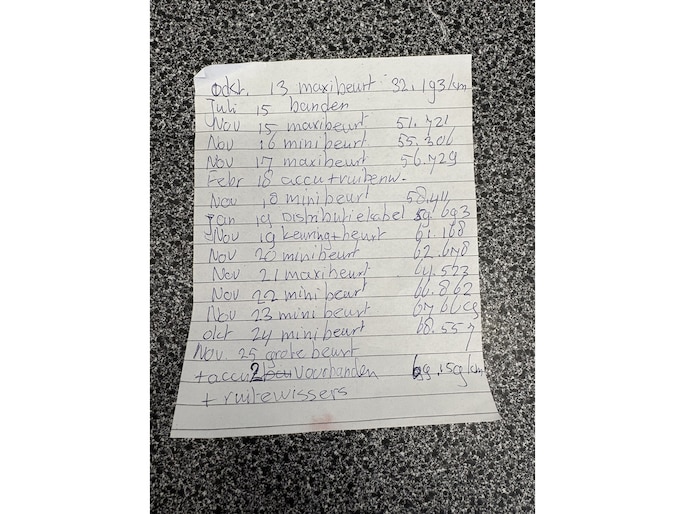 okt. 13 maxibeurt 32.193/km
Juli 15 banden
Nov 15 maxibeurt 51.721
Nov 16 minibeurt 55.306
Nov 17 maxibeurt 56.729
Febr 18 accu+ruitenw.
Nov 18 minibeurt 58.411
Jan 19 Distributiekabel 59.693
Nov 19 keuring+beurt 61.168
Nov 20 minibeurt 62.678
Nov 21 maxibeurt 64.523
Nov 22 minibeurt 66.862
Nov 23 minibeurt
okt 24 minibeurt 68.557
Nov. 25 grote beurt
+accu 2 voorbanden 69.159/km
+ ruitewissers